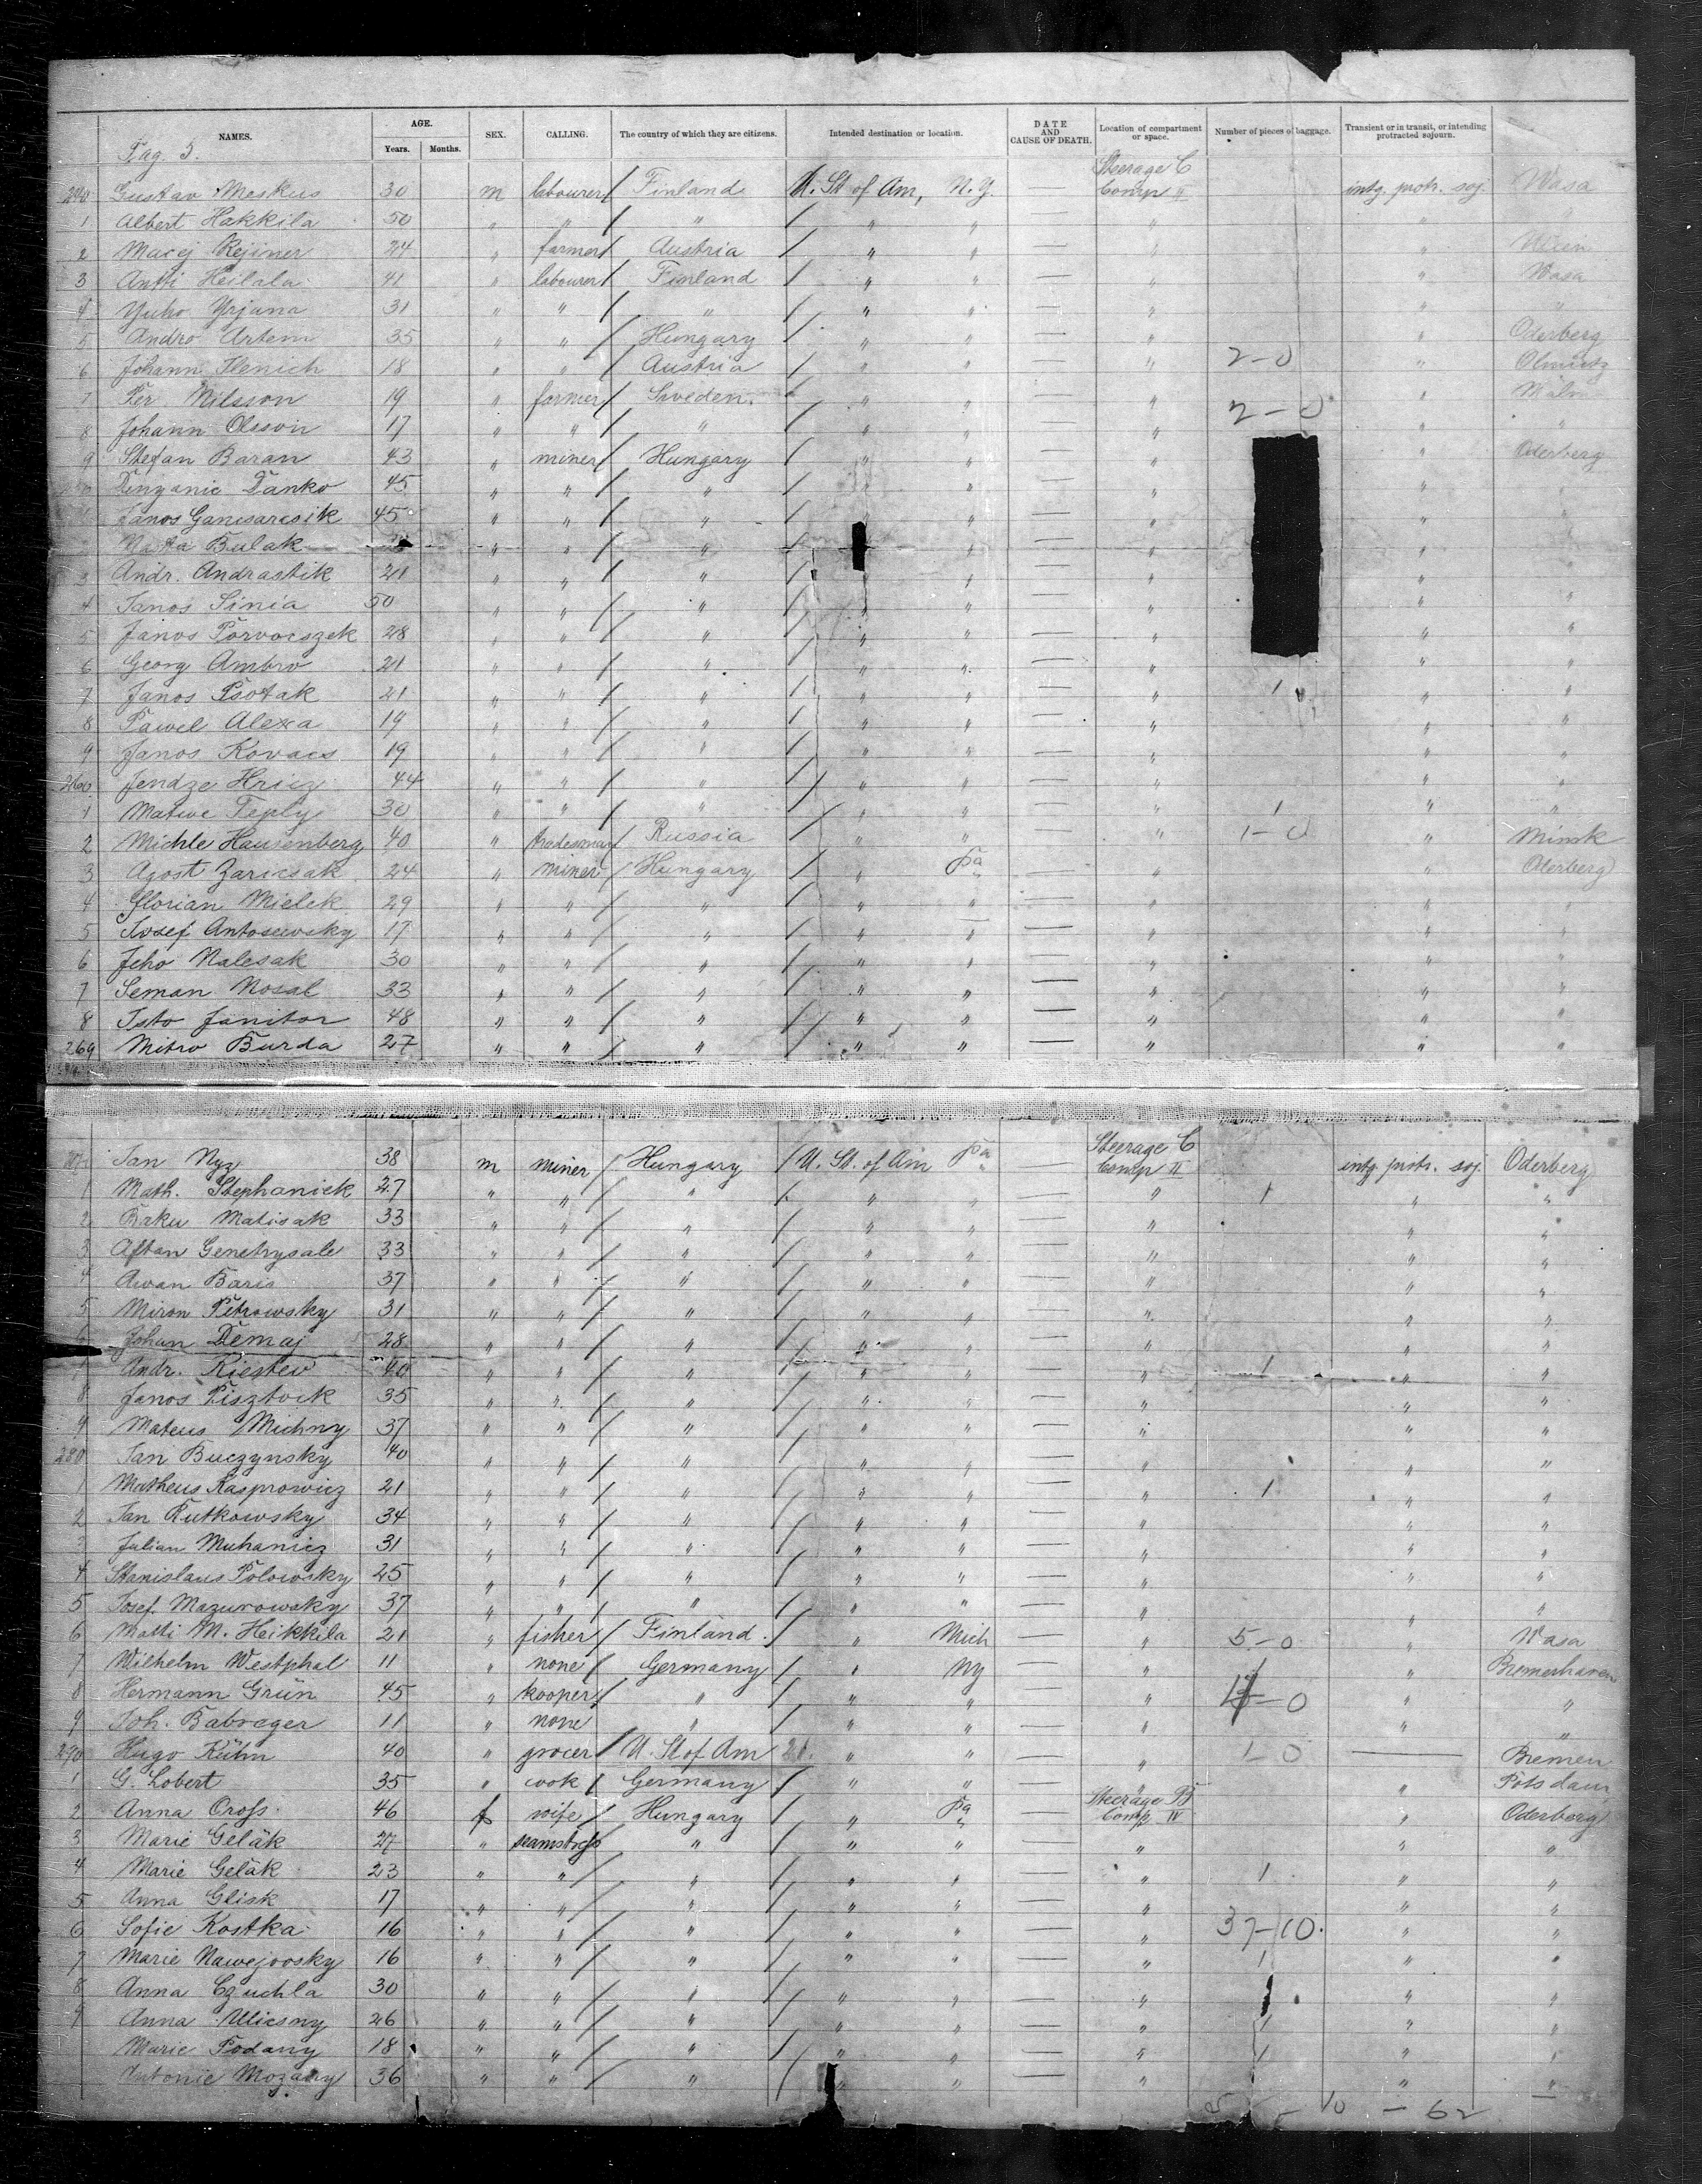 NAMES. AGE. Years. Months. SEX. CALLING. The country of which they are citizens. Intended destination or location. DATE AND CAUSE OF DEATH. Location of compartment or space. Number of pieces of baggage. Transient or in transit, or intending protracted sojourn.
Pag. 5.
240 Gustav Meskus 30 m labourer Finland U. St of Am, N.Y. — Steerage C Comp II intg. protr. soj. Wasa
1 Albert Hakkila 50 " " " " " — " " "
2 Macej Rejiner 24 " farmer Austria " " — " "
3 Antti Heilala 41 " labourer Finland " " — " " Wasa
4 Yuho Yrjana 31 " " " " " — " " "
5 Andro Artem 35 " " Hungary " " — " " Oderberg
6 Johann Ilenich 18 " " Austria " " — " 2-0 " Olmütz
7 Per Nilsson 19 " farmer Sweden. " " — " " Malm
8 Johann Olsson 17 " " " " " — " 2-0 " "
9 Stefan Baran 43 " miner Hungary " " — " " Oderberg
Danko 45 " " " " " — " " "
Janos Gancsarcsik 45 " " " " " — " " "
Bulak " " " " — " " "
3 Andr. Andrastik 21 " " " " " — " " "
4 Janos Sinia 50 " " " " " — " " "
5 Janos Porvocszek 28 " " " " " — " " "
6 Georg Ambro 21 " " " " " — " " "
7 Janos Psotak 21 " " " " " — " 1 " "
8 Pawel Alexa 19 " " " " " — " " "
9 Janos Kovacs 19 " " " " " — " " "
260 Jendze Hricz 44 " " " " " — " " "
1 Matwe Teply 30 " " " " " — " 1 " "
2 Michle Hausenberg 40 " tradesman Russia " " — " 1-0 " Minsk
3 Agost Zaricsak 24 " miner Hungary " Pa — " " Oderberg
4 Florian Mielek 29 " " " " " — " " "
5 Josef Antosewsky 17 " " " " " — " " "
6 Jeho Nalesak 30 " " " " " — " " "
7 Seman Nosal 33 " " " " " — " " "
8 Isto Janitor 48 " " " " " — " " "
269 Mitro Burda 27 " " " " " — " " "
Jan Nyz 38 m miner Hungary U. St. of Am Pa — Steerage C Comp II intg. protr. soj. Oderberg
1 Math. Stephanick 27 " " " " " — " 1 " "
2 Baku Matisak 33 " " " " " — " " "
3 Aftan Genetrysale 33 " " " " " — " " "
4 Awan Baris 37 " " " " " — " " "
5 Miron Petrowsky 31 " " " " " — " " "
6 Johan Demaj 28 " " " " " — " " "
7 Andr. Kiestew 40 " " " " " — " 1 " "
8 Janos Pisztock 35 " " " " " — " " "
9 Mateus Michny 37 " " " " " — " " "
280 Jan Buczynsky 40 " " " " " — " " "
1 Matheus Kasprowicz 21 " " " " " — " 1 " "
2 Jan Rutkowsky 34 " " " " " — " " "
3 Julian Muhanicz 31 " " " " " — " " "
4 Stanislaus Polowsky 25 " " " " " — " " "
5 Josef Mazurowsky 37 " " " " " — " " "
6 Matti M. Heikkila 21 " fisher Finland. " Mich — " 5-0 " Wasa
7 Wilhelm Westphal 11 " none Germany " NY — " " Bremerhaven
8 Hermann Grün 45 " kooper " " " — " -0 " "
9 Joh. Babreger 11 " none " " " — " " "
290 Hugo Kühn 40 " grocer U. St of Am 21. " " — " 1-0 — Bremen
1 G. Lobert 35 " cook Germany " " — " " Potsdam
2 Anna Oross 46 f wife Hungary " Pa — Steerage B Comp IV " Oderberg
3 Marie Geläk 27 " seamstress " " " — " " "
4 Marie Geläk 23 " " " " " — " 1 " "
5 Anna Glisk 17 " " " " " — " " "
6 Sofie Kostka 16 " " " " " — " 37-10. " "
7 Marie Nawejovsky 16 " " " " " — " 1 " "
8 Anna Czuchla 30 " " " " " — " 1 " "
9 Anna Ulicsny 26 " " " " " — " 1 " "
Marie Podany 18 " " " " " — " 1 " "
Antonie Mozary 36 " " " " " — " " "
- 10 - 62